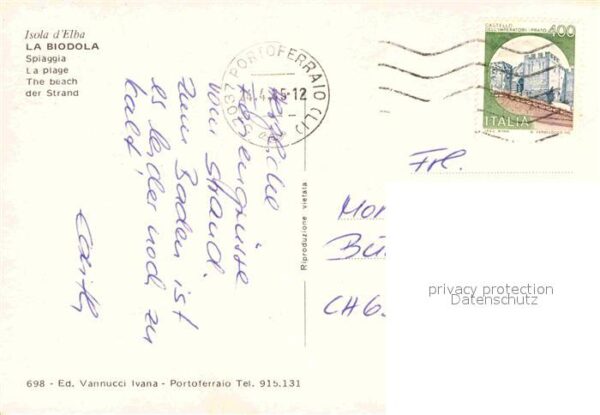 Isola d'Elba
LA BIODOLA
Spiaggia
La plage
The beach
der Strand
PORTOFERRAIO (LI)
CASTELLO
DELL'IMPERATORE - PRATO
400
ITALIA
Herzliche
vom Strand.
Zum Baden ist
es leider noch zu
kalt!
Frl.
Mon
Bü
CH 6
Riproduzione vietata
privacy protection
Datenschutz
698 - Ed. Vannucci Ivana - Portoferraio Tel. 915.131